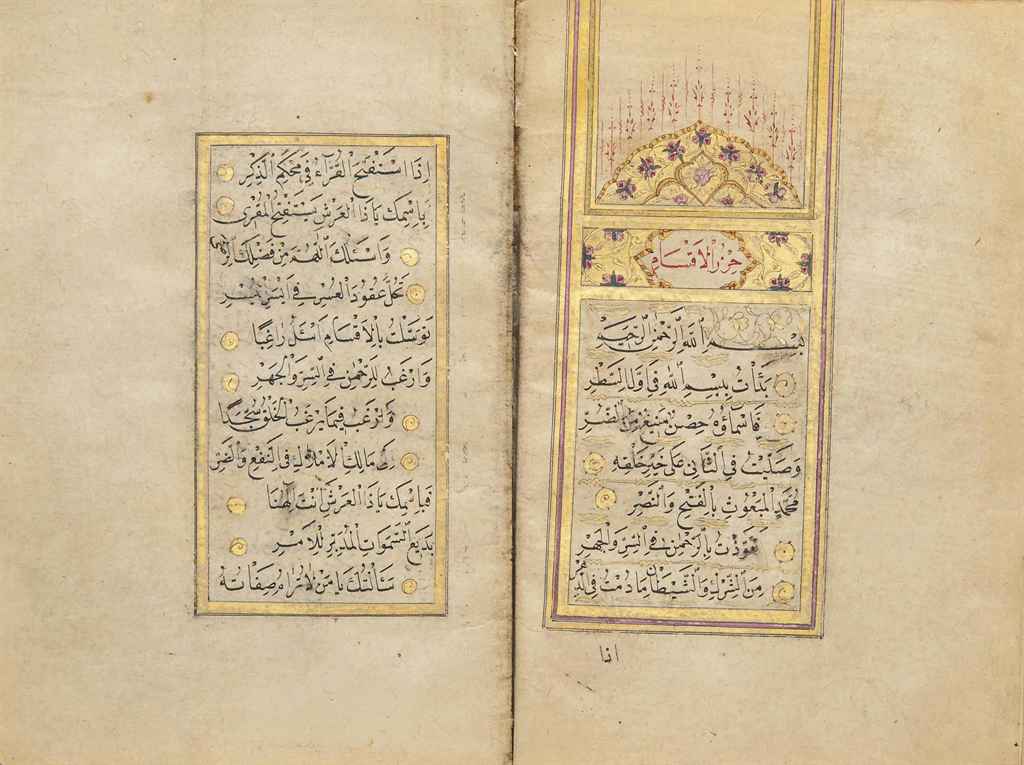 حِزْرُ الْاَقْسَامِ
بِسْمِ اللّٰهِ الرَّحْمٰنِ الرَّحِيمِ
بَدَأْتُ بِبِسْمِ اللّٰهِ فِي اَوَّلِ السَّطْرِ
فَاَسْمَاؤُهُ حِصْنٌ مَنِيعٌ مِنَ الضُّرِّ
وَصَلَّيْتُ فِي الثَّانِي عَلَى خَيْرِ خَلْقِهِ
مُحَمَّدٍ الْمَبْعُوثِ بِالْفَتْحِ وَالنَّصْرِ
تَعَوَّذْتُ بِالرَّحْمٰنِ فِي السِّرِّ وَالْجَهْرِ
مِنَ الشِّرْكِ وَالشَّيْطَانِ مَا دُمْتُ فِي الدَّهْرِ
اذا
اِذَا اسْتَفْتَحَ الْقُرَّاءُ فِي مُحْكَمِ الذِّكْرِ
بِاِسْمِكَ يَا ذَا الْعَرْشِ يَسْتَفْتِحُ الْمُقْرِى
وَاَسْئَلُكَ اللّٰهُمَّ مِنْ فَضْلِكَ الَّذِي
تَحُلُّ عُقُودَ الْعُسْرِ فِي اَيْسَرِ الْيُسْرِ
تَوَسَّلْتُ بِالْاَقْسَامِ اَسْئَلُ رَاغِبًا
وَاَرْغَبُ لِلرَّحْمٰنِ فِي السِّرِّ وَالْجَهْرِ
وَاَرْغَبُ فِيمَا يَرْغَبُ الْخَلْقُ سُجَّدًا
مَالِكِ الْاَمْلَاكِ فِي النَّفْعِ وَالضُّرِّ
فَبِاسْمِكَ يَا ذَا الْعَرْشِ اَنْتَ اِلٰهُنَا
بَدِيعُ السَّمٰوَاتِ الْمُدَبِّرُ لِلْاَمْرِ
سَئَلْتُكَ يَا مَنْ لَا تُرَامُ صِفَاتُهُ